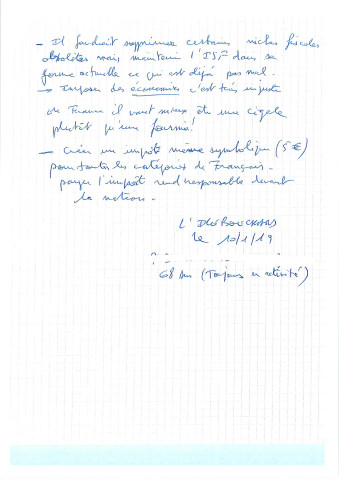 - Il faudrait supprimer certaines niches fiscales
obsolètes mais maintenir l'ISF dans sa
forme actuelle ce qui est déjà pas mal.
-> Imposer des économies c'est très injuste
en France il vaut mieux être une cigale
plutôt qu'une fourmi!
- Créer un impôt même symbolique (5 €)
pour toutes les catégories de Français.
payer l'impôt rend responsable devant
la nation.
le 10/1/19
68 ans (Toujours en activité)